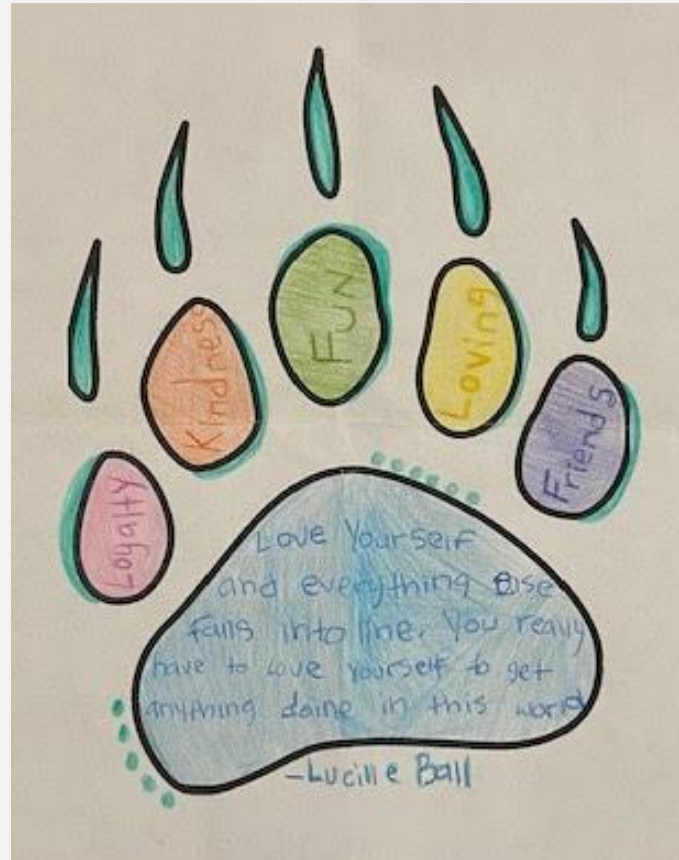 Loyalty
Kindness
Fun
Loving
Friends
Love Yourself
and everything else
falls into line. You really
have to love yourself to get
anything doine in this world
-Lucille Ball